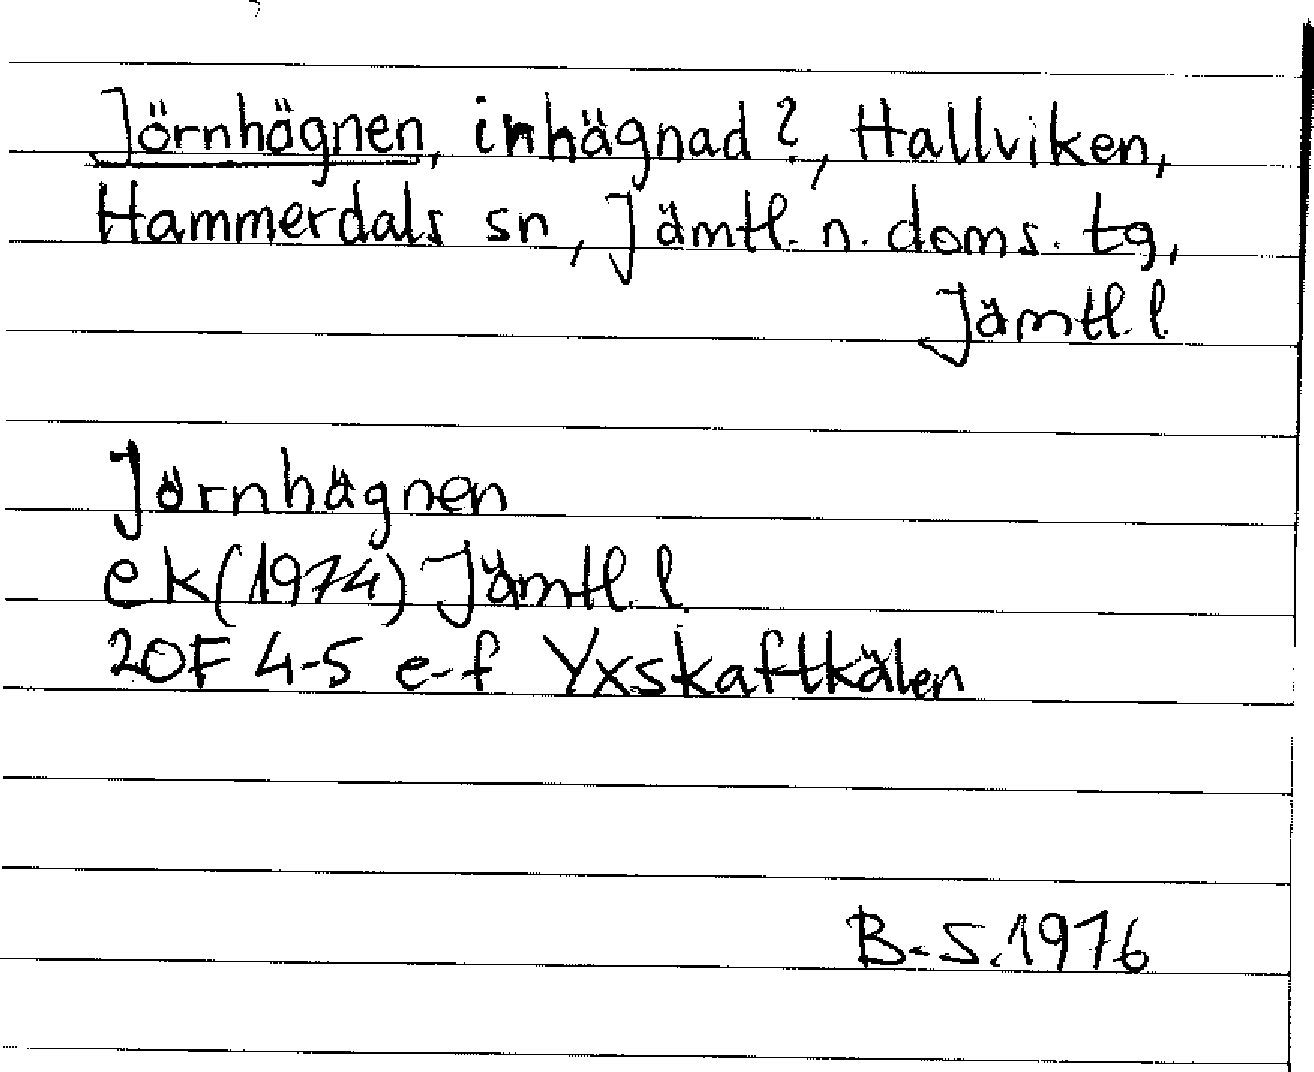 Jörnhägnen, inhägnad?, Hallviken,
Hammerdals sn, Jämtl. n. doms. tg,
Jämtl. l.
Jörnhägnen
ek (1974) Jämtl. l.
20F 4-5 e-f Yxskaftkälen
B-S. 1976